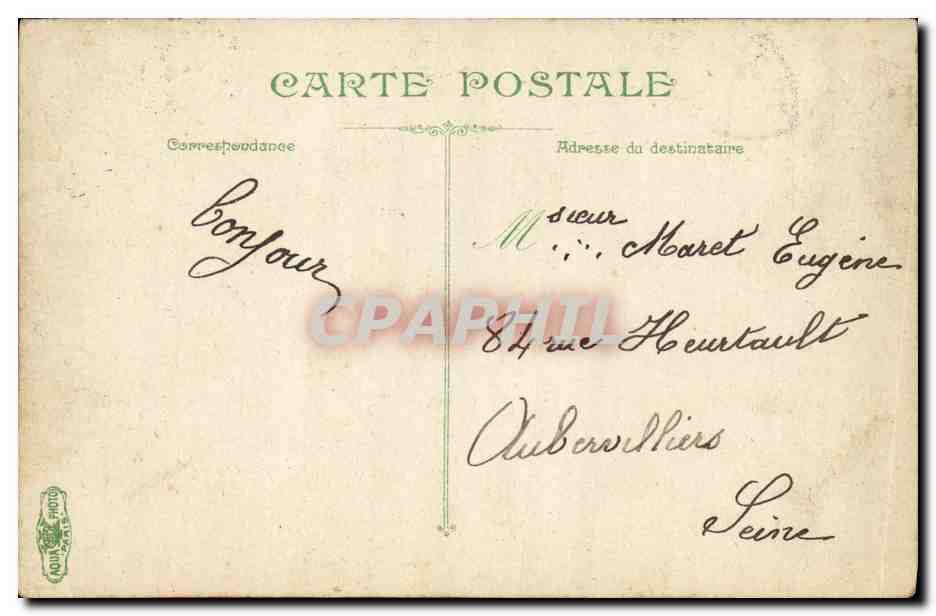 CARTE POSTALE
Correspondance
Adresse du destinataire
Bonjour
Msieur Maret Eugène
84 rue Heurtault
Aubervilliers
Seine
CPAPHIL
AQUA PHOTO
PARIS